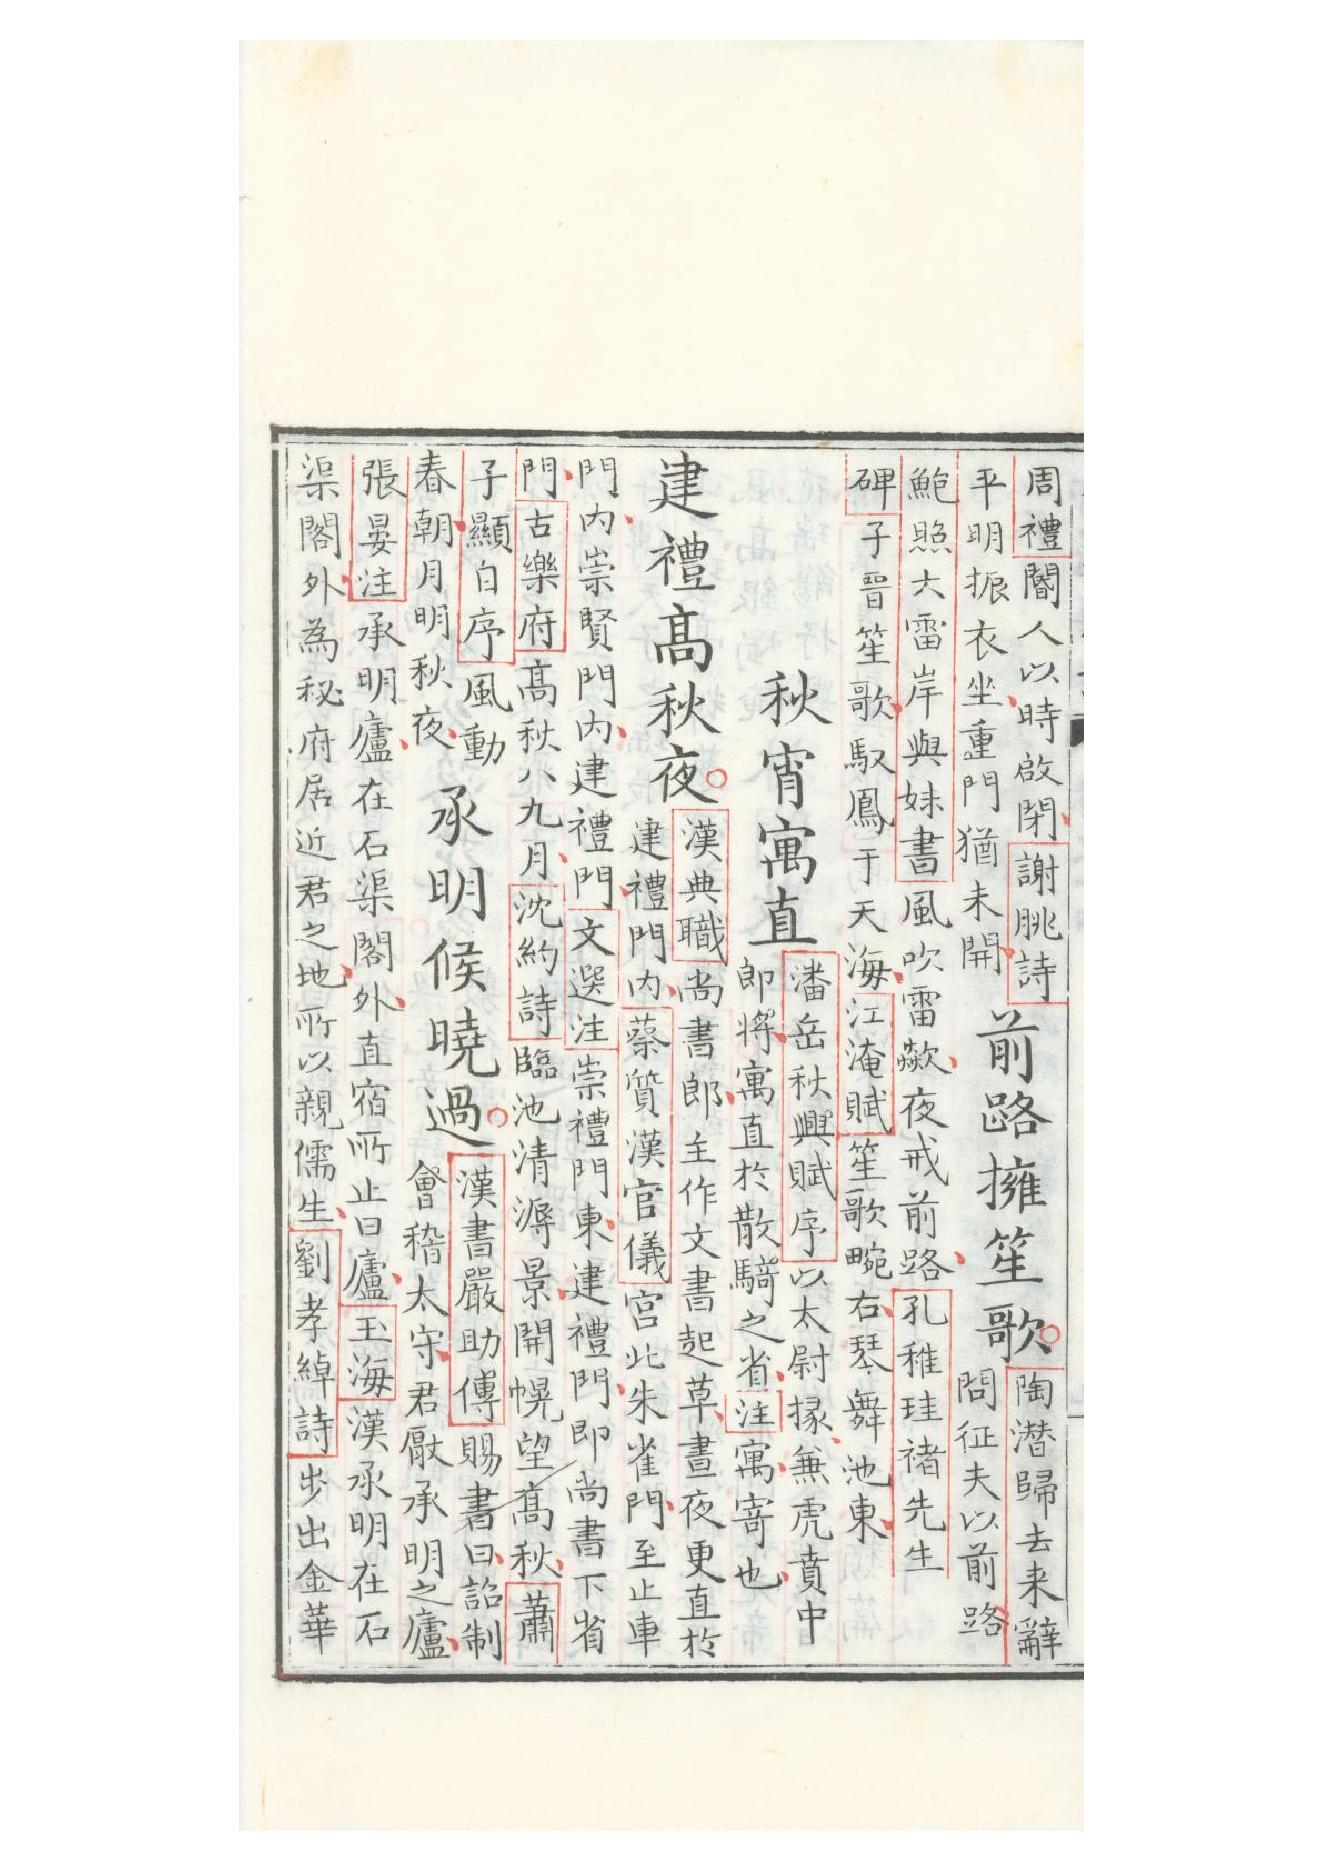 周禮閽人以時啟閉謝朓詩
平明振衣坐重門猶未開
前路擁笙歌
陶潛歸去来辭
問征夫以前路
鮑照大雷岸與妹書風吹雷歘夜戒前路孔稚珪禇先生
碑子晉笙歌馭鳳于天海江淹賦笙歌畹右琴舞池東
秋宵寓直
潘岳秋興賦序以太尉掾兼虎賁中
郎將寓直於散騎之省注寓寄也
建禮髙秋夜
漢典職尚書郎主作文書起草晝夜更直於
建禮門内蔡質漢官儀宫北朱雀門至止車
門内崇賢門内建禮門文選注崇禮門東建禮門即尚書下省
門古樂府髙秋八九月沈約詩臨池清溽景開幌望髙秋蕭
子顯自序風動
春朝月明秋夜
承明候曉過
漢書嚴助傳賜書曰詔制
會稽太守君厭承明之廬
張晏注承明廬在石渠閣外直宿所止曰廬玉海漢承明在石
渠閣外為秘府居近君之地所以親儒生劉孝綽詩步出金華